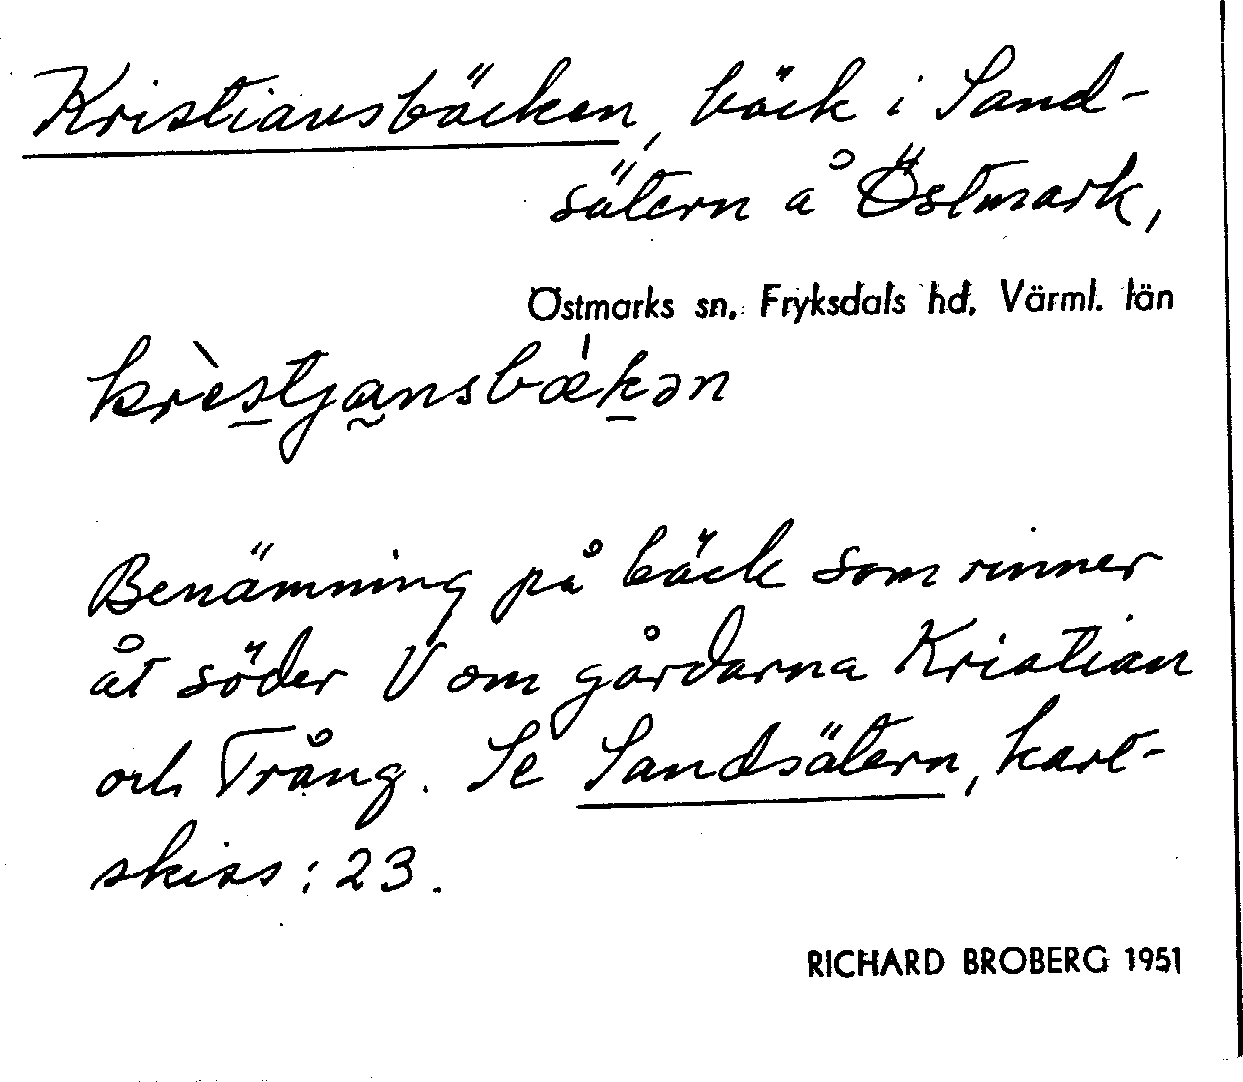 Kristiansbäcken, bäck i Sand-
sätern å Östmark,
Östmarks sn. Fryksdals hd. Värml. län
krèstjansbǽkən
Benämning på bäck som rinner
åt söder V om gårdarna Kristian
och Trång. Se Sandsätern, kart-
skiss: 23.
RICHARD BROBERG 1951